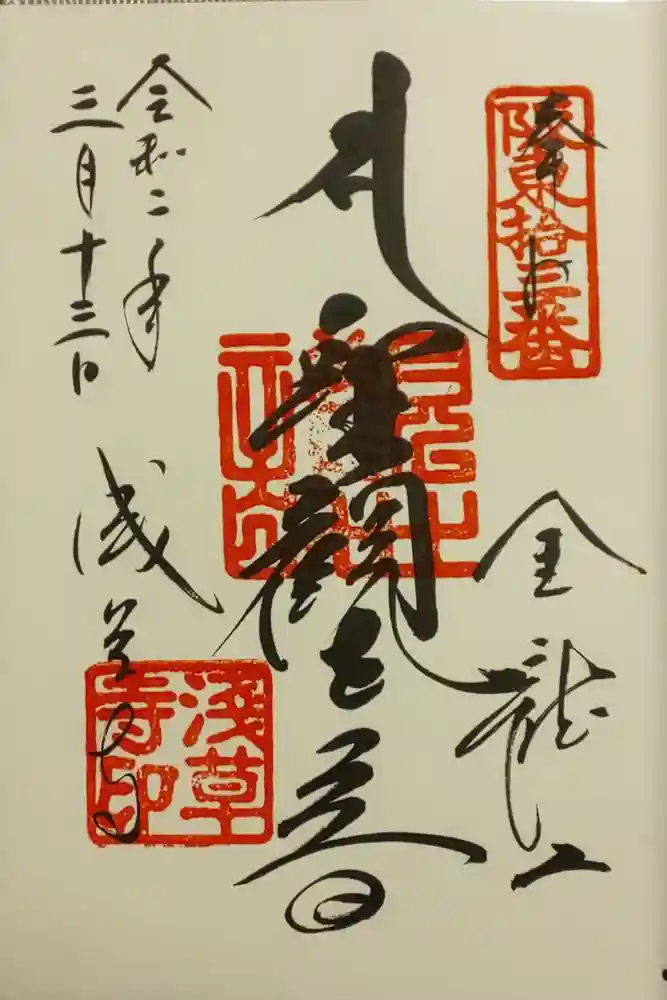 奉拝
阪東拾三番
金龍山
聖観世音
令和二年
三月十三日
浅草寺
浅草寺印